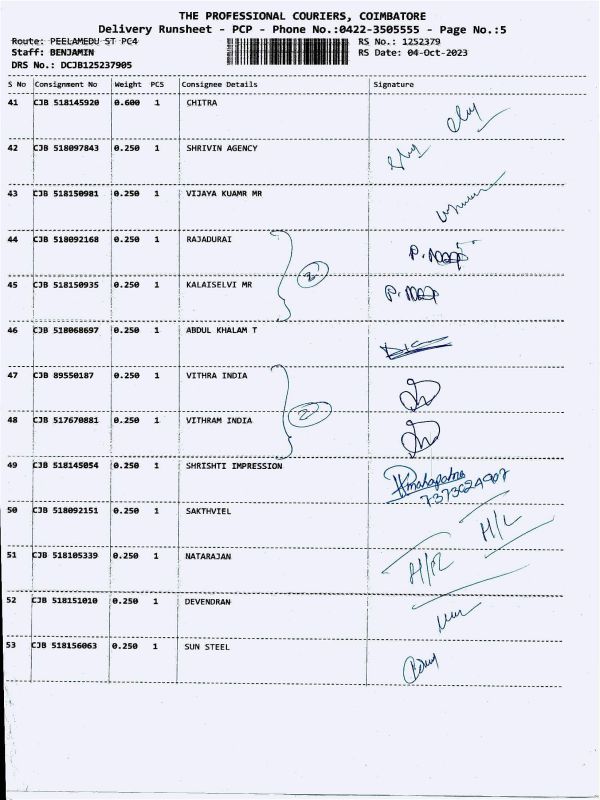 THE PROFESSIONAL COURIERS, COIMBATORE
Delivery Runsheet - PCP - Phone No.:0422-3505555 - Page No.:5
Route: PEELAMEDU ST PC4 RS No.: 1252379
Staff: BENJAMIN RS Date: 04-Oct-2023
DRS No.: DCJB125237905
S No Consignment No Weight PCS Consignee Details Signature
41 CJB 518145920 0.600 1 CHITRA
42 CJB 518097843 0.250 1 SHRIVIN AGENCY
43 CJB 518150981 0.250 1 VIJAYA KUAMR MR
44 CJB 518092168 0.250 1 RAJADURAI
2
45 CJB 518150935 0.250 1 KALAISELVI MR
46 CJB 518068697 0.250 1 ABDUL KHALAM T
47 CJB 89550187 0.250 1 VITHRA INDIA
2
48 CJB 517670881 0.250 1 VITHRAM INDIA
49 CJB 518145054 0.250 1 SHRISHTI IMPRESSION
7373024907
50 CJB 518092151 0.250 1 SAKTHVIEL H/L
51 CJB 518105339 0.250 1 NATARAJAN
52 CJB 518151010 0.250 1 DEVENDRAN
53 CJB 518156063 0.250 1 SUN STEEL